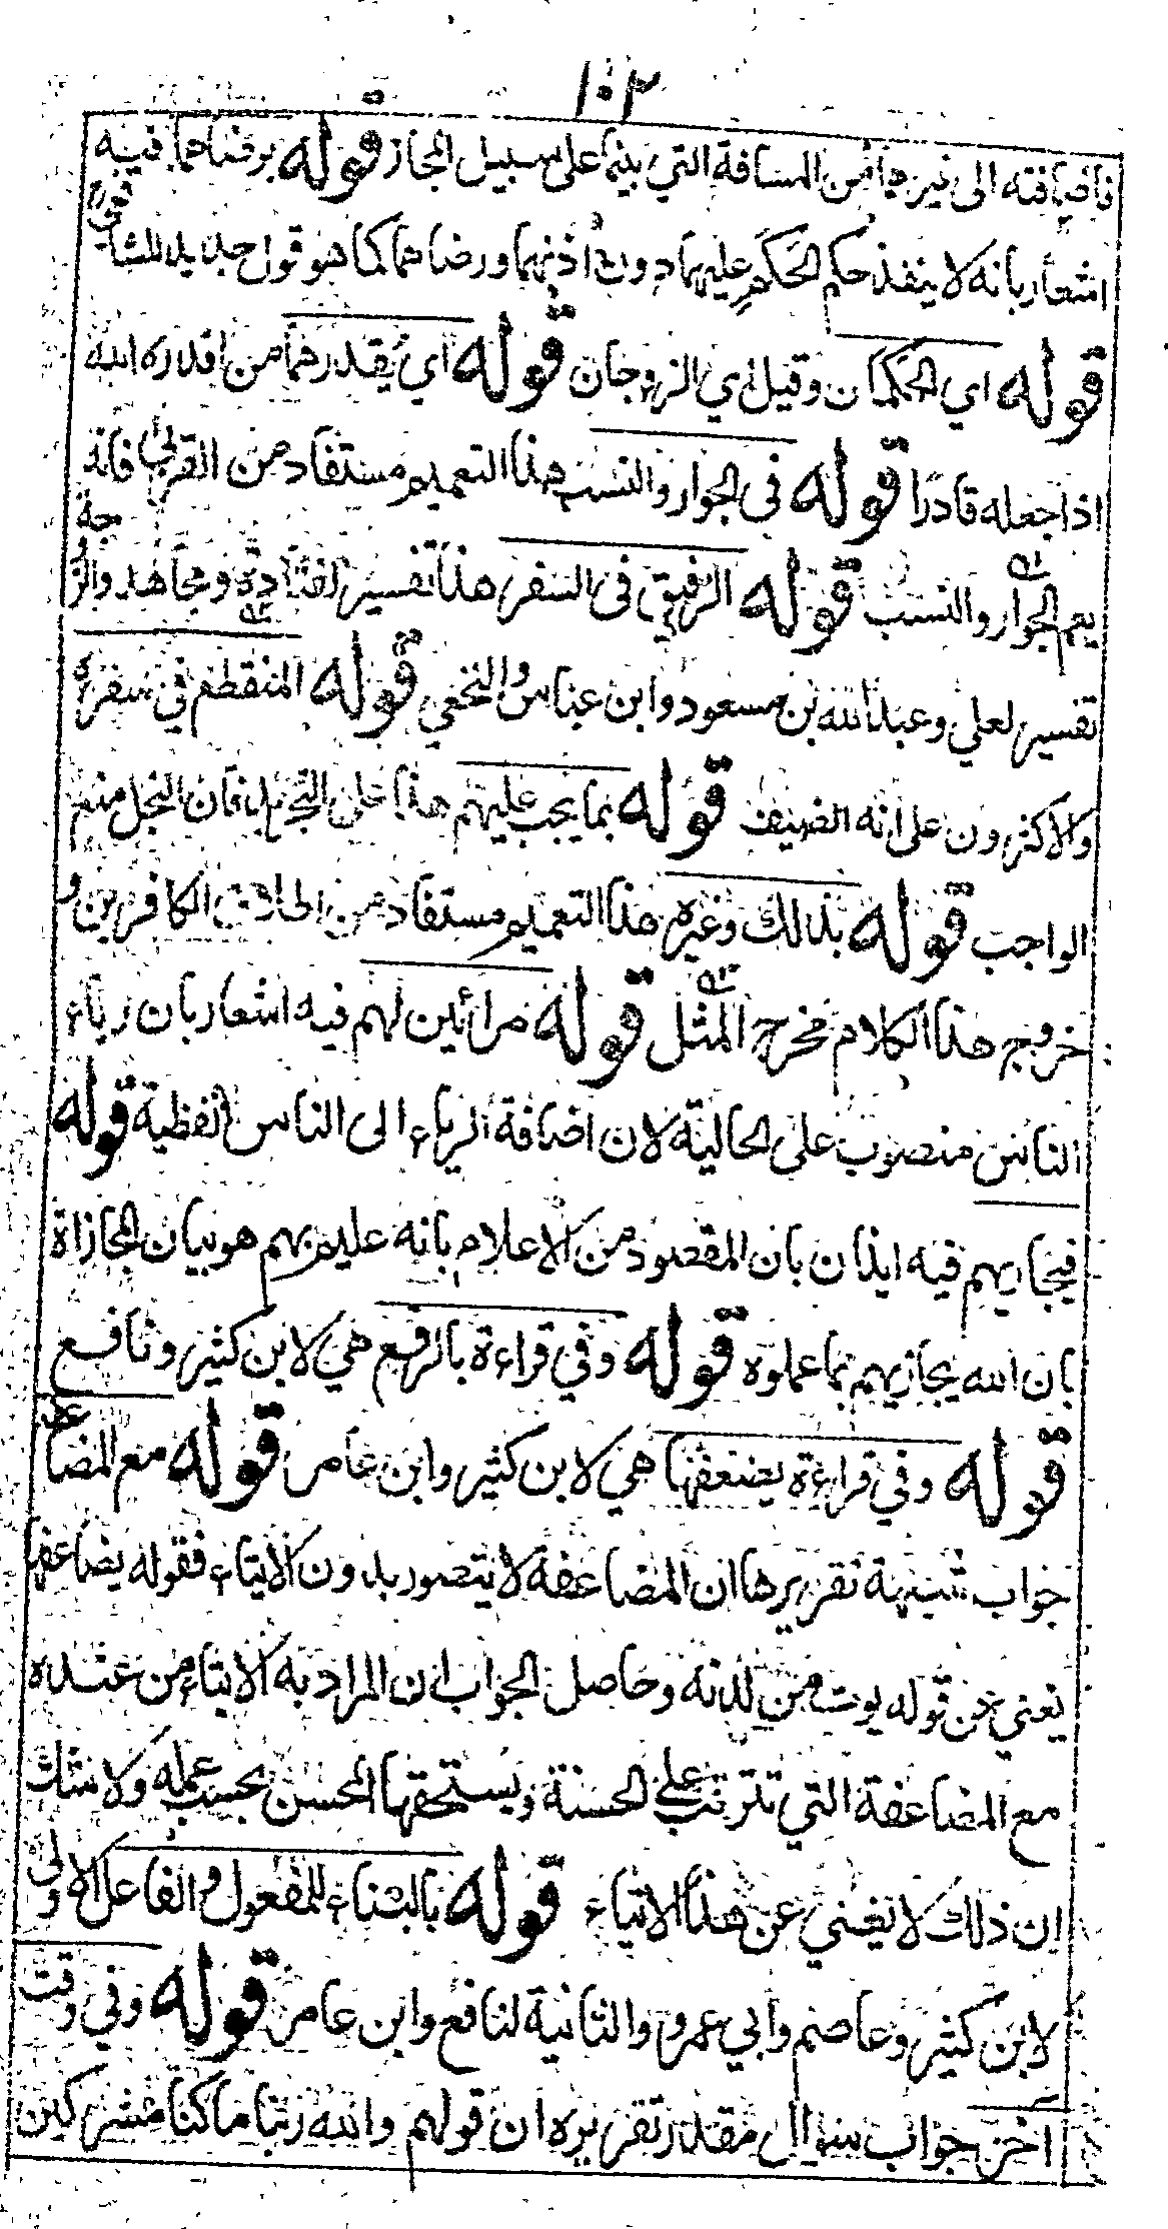 ١٠٢
فاضافته الى غيرها من المسافة التي بينهما على سبيل المجاز قوله برضاهما فيه
اشعار بانه لا ينفذ حكم الحكم عليهما دون اذنهما ورضاهما كما هو قول جديد للشافعي
قوله اي الحكمان وقيل اي الزوجان قوله اي يقدرهما من اقدره الله
اذا جعله قادرا قوله في الجوار والنسب هذا التعميم مستفاد من القربى فانه
يعم الجوار والنسب قوله الرفيق في السفر هذا تفسير لقتادة ومجاهد والزوجة
تفسير لعلي وعبد الله بن مسعود وابن عباس والنخعي قوله المنقطع في سفره
والاكثرون على انه الضيف قوله بما يجب عليهم هذا على فان البخل منع
الواجب قوله بذالك وغيره هذا التعميم مستفاد من اطلاق الكافرين و
خروج هذا الكلام مخرج المثل قوله مرائين لهم فيه اشعار بان رياء
الناس منصوب على الحالية لان اضافة الرياء الى الناس لفظية قوله
فيجازيهم فيه ايذان بان المقصود من الاعلام بانه عليم بهم هو بيان المجازاة
بان الله يجازيهم بما عملوه قوله وفي قراءة بالرفع هي لابن كثير ونافع
قوله وفي قراءة يضعفها هي لابن كثير وابن عامر قوله مع المضاعفة
جواب شبهة تقريرها ان المضاعفة لا يتصور بدون الايتاء فقوله يضاعفها
يغني عن قوله يوت من لدنه وحاصل الجواب ان المراد به الايتاء من عنده
مع المضاعفة التي تترتب على الحسنة ويستحقها المحسن بحسب عمله ولا شك
ان ذلك لا يغني عن هذا الايتاء قوله بالبناء للمفعول والفاعل الاولى
لابن كثير وعاصم وابي عمرو والثانية لنافع وابن عامر قوله وفي وقت
اخر جواب سؤال مقدر تقريره ان قولهم والله ربنا ما كنا مشركين